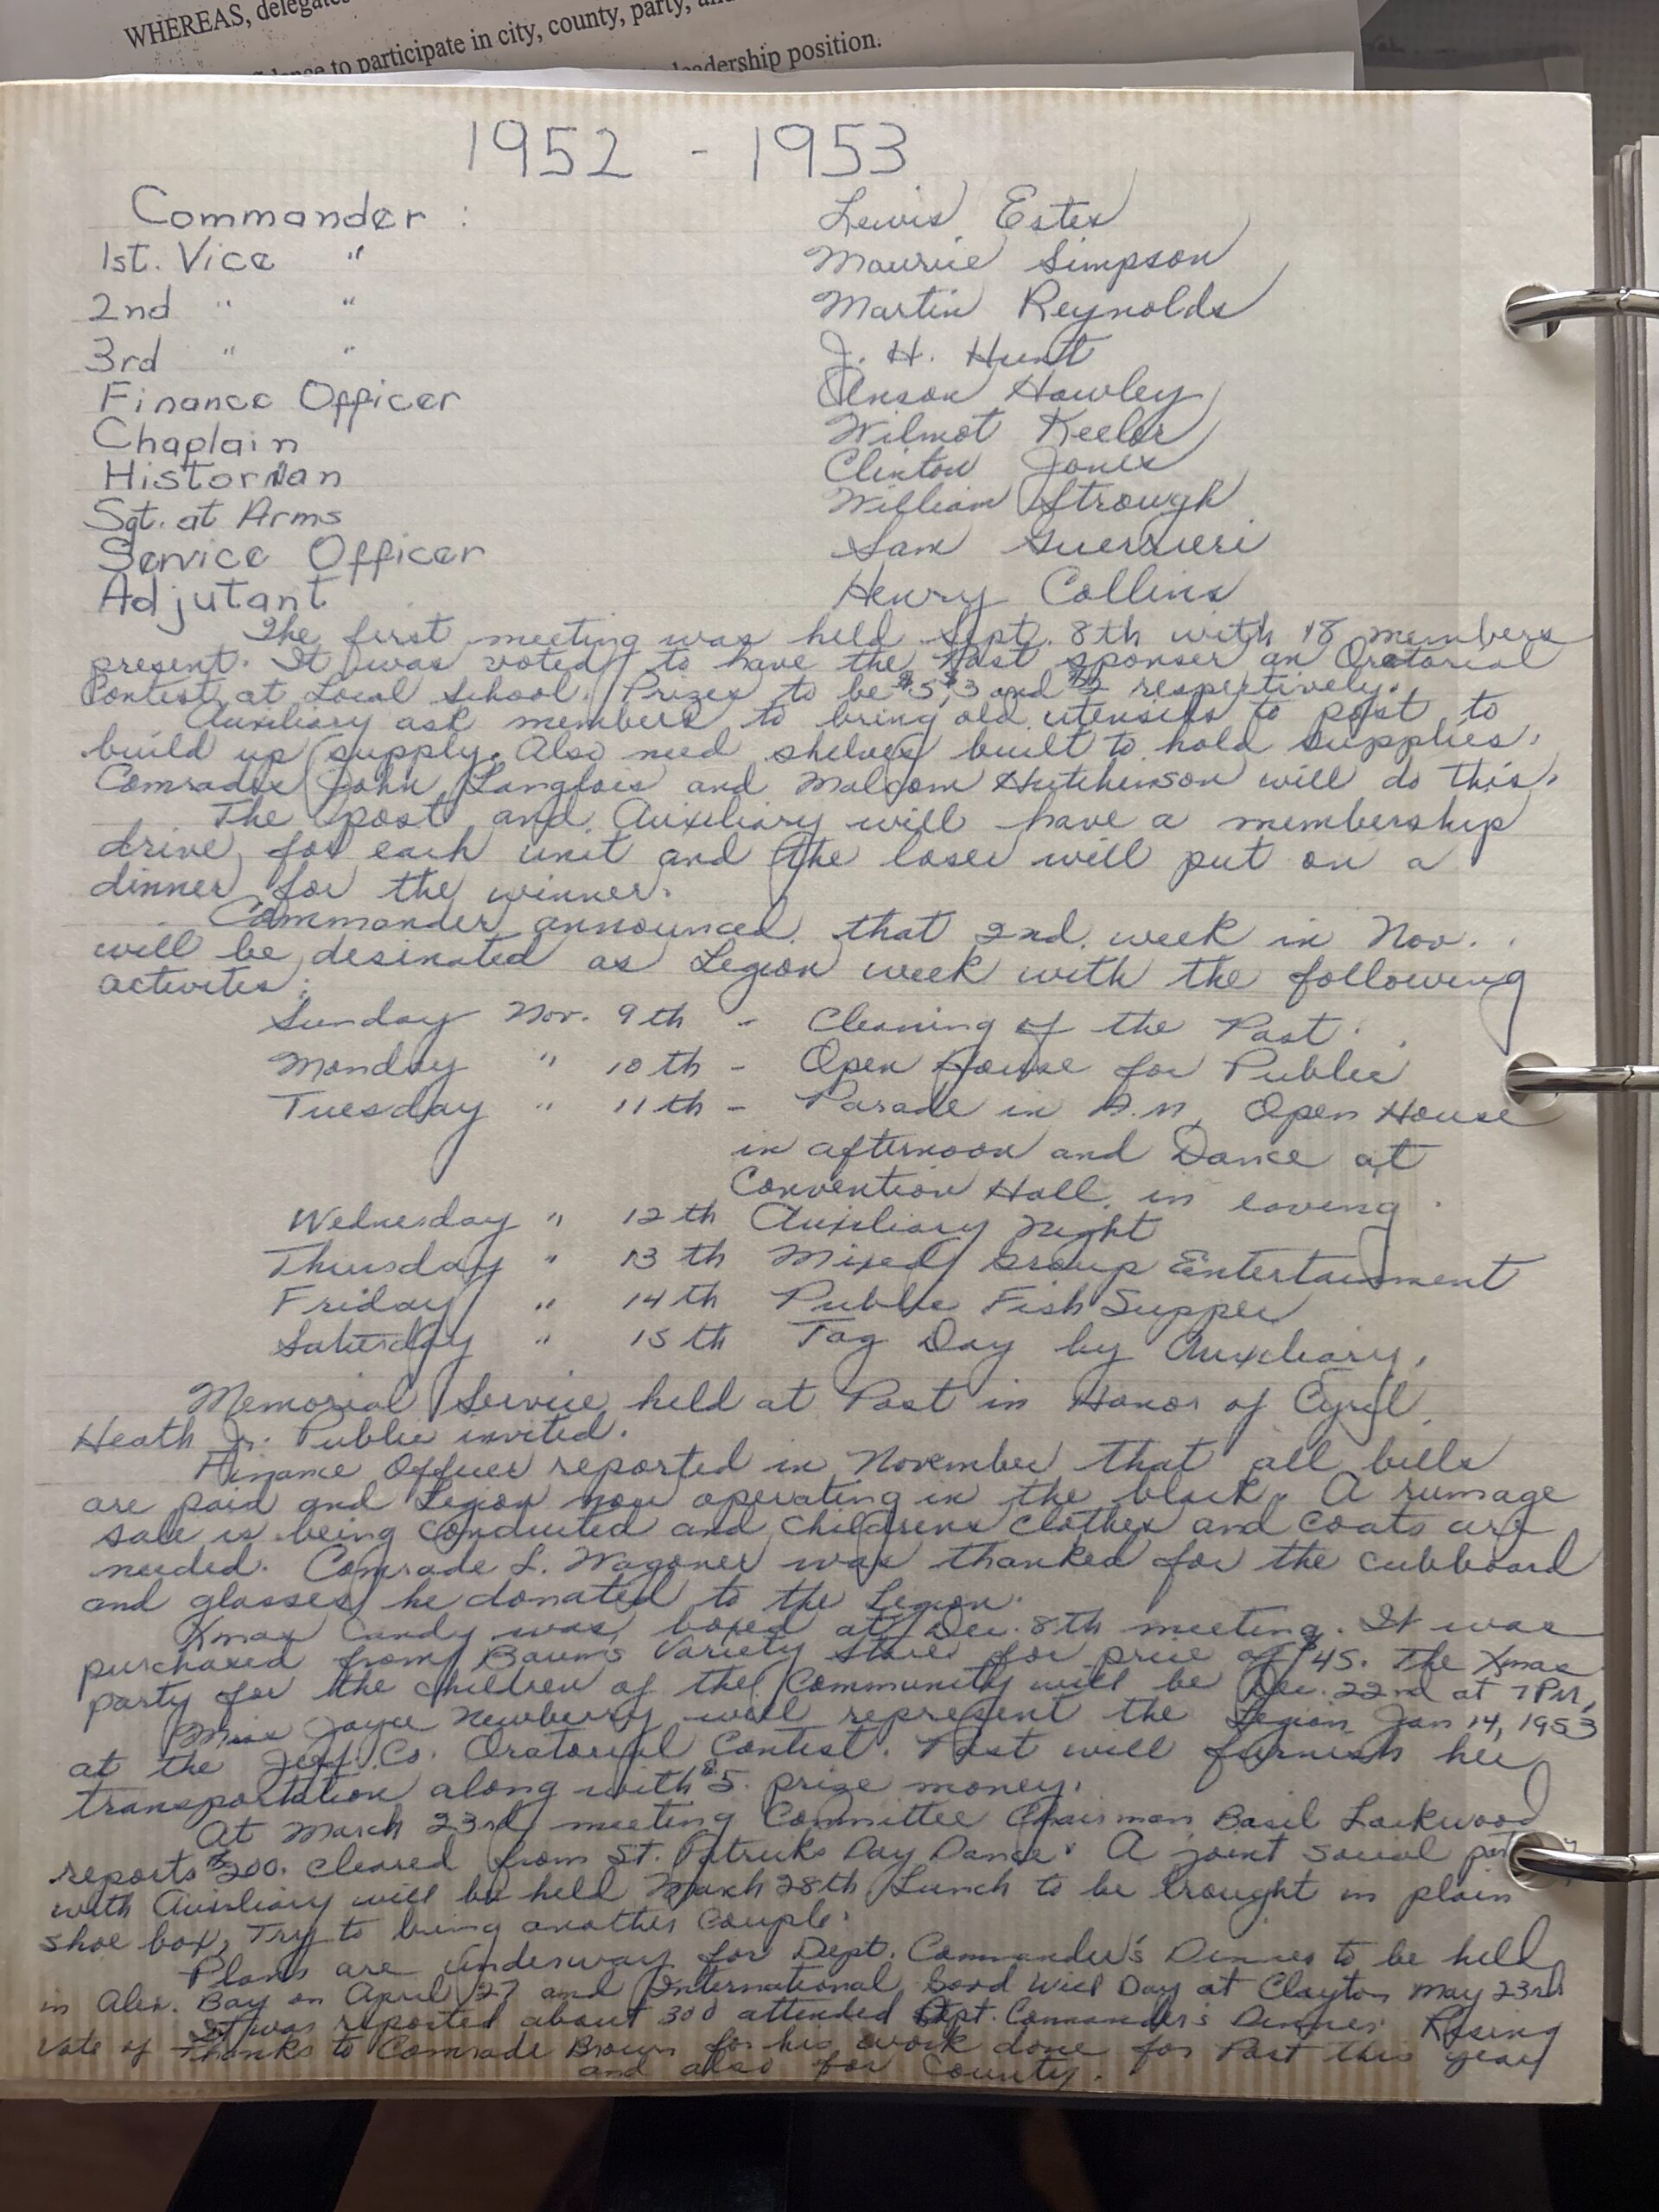 WHEREAS, delegates
to participate in city, county, party,
leadership position.
1952 - 1953
Commander : Lewis Estes
1st. Vice " Maurice Simpson
2nd " " Martin Reynolds
3rd " " J. H. Hunt
Finance Officer Anson Hawley
Chaplain Wilmot Keeler
Historian Clinton Jones
Sgt. at Arms William Strough
Service Officer Sam Guerrieri
Adjutant Henry Collins
The first meeting was held Sept. 8th with 18 members
present. It was voted to have the Post sponser an Oratorial
Contest at Local School. Prizes to be $5, $3 and $2 respectively.
Auxiliary ask members to bring old utensils to post to
build up supply. Also need shelves built to hold supplies.
Comrades John Langlois and Malcom Hutchinson will do this.
The post and Auxiliary will have a membership
drive for each unit and the loser will put on a
dinner for the winner.
Commander announced that 2nd. week in Nov.
will be desinated as Legion week with the following
activites:
Sunday Nov. 9th - Cleaning of the Post.
Monday " 10th - Open House for Public
Tuesday " 11th - Parade in A.M, Open House
in afternoon and Dance at
Convention Hall in evening.
Wednesday " 12th Auxiliary Night
Thursday " 13th Mixed Group Entertainment
Friday " 14th Public Fish Supper
Saturday " 15th Tag Day by Auxiliary.
Memorial Service held at Post in Honor of Cyril
Heath Jr. Public invited.
Finance Officer reported in November that all bills
are paid and Legion now operating in the black. A rumage
sale is being conducted and childrens clothes and coats are
needed. Comrade L. Wagoner was thanked for the cubboard
and glasses he donated to the Legion.
Xmas Candy was boxed at Dec. 8th meeting. It was
purchased from Baums Variety Store for price of $45. The Xmas
party for the children of the Community will be Dec. 22nd at 7PM.
Miss Joyce Newberry will represent the Legion Jan 14, 1953
at the Jeff. Co. Oratorical Contest. Post will furnish her
transportation along with $5. prize money.
At March 23rd meeting Committee Chairman Basil Lockwood
reports $200. cleared from St. Patricks Day Dance. A joint social
with Auxiliary will be held March 28th Lunch to be brought in plain
shoe box, Try to bring another couple.
Plans are underway for Dept. Commander's Dinner to be held
in Alex. Bay on April 27 and International Good Will Day at Clayton May 23rd
It was reported about 300 attended Dept. Commander's Dinner. Rising
Vote of Thanks to Comrade Brown for his work done for Post this year
and also for County.